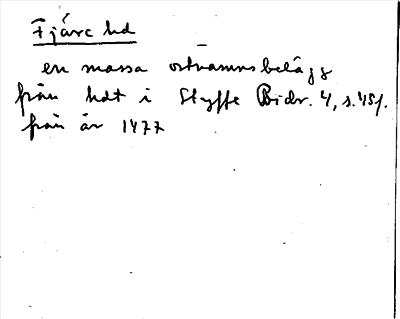 Fjäre hd
en massa ortnamnsbelägg
från hdt i Styffe Bidr. 4, s. 45f.
från år 1477